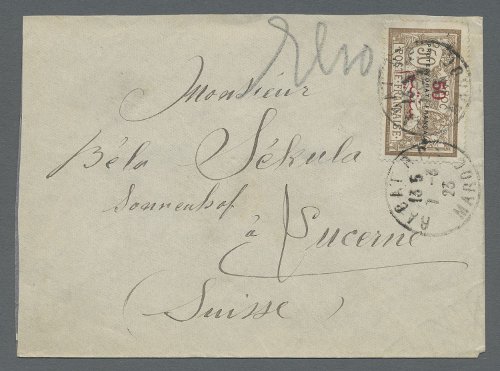 Monsieur
Béla Sékula
Sonnenhof
à Lucerne
(Suisse)
50
POSTE FRANÇAISE
RABAT
MAROC
13 5
23